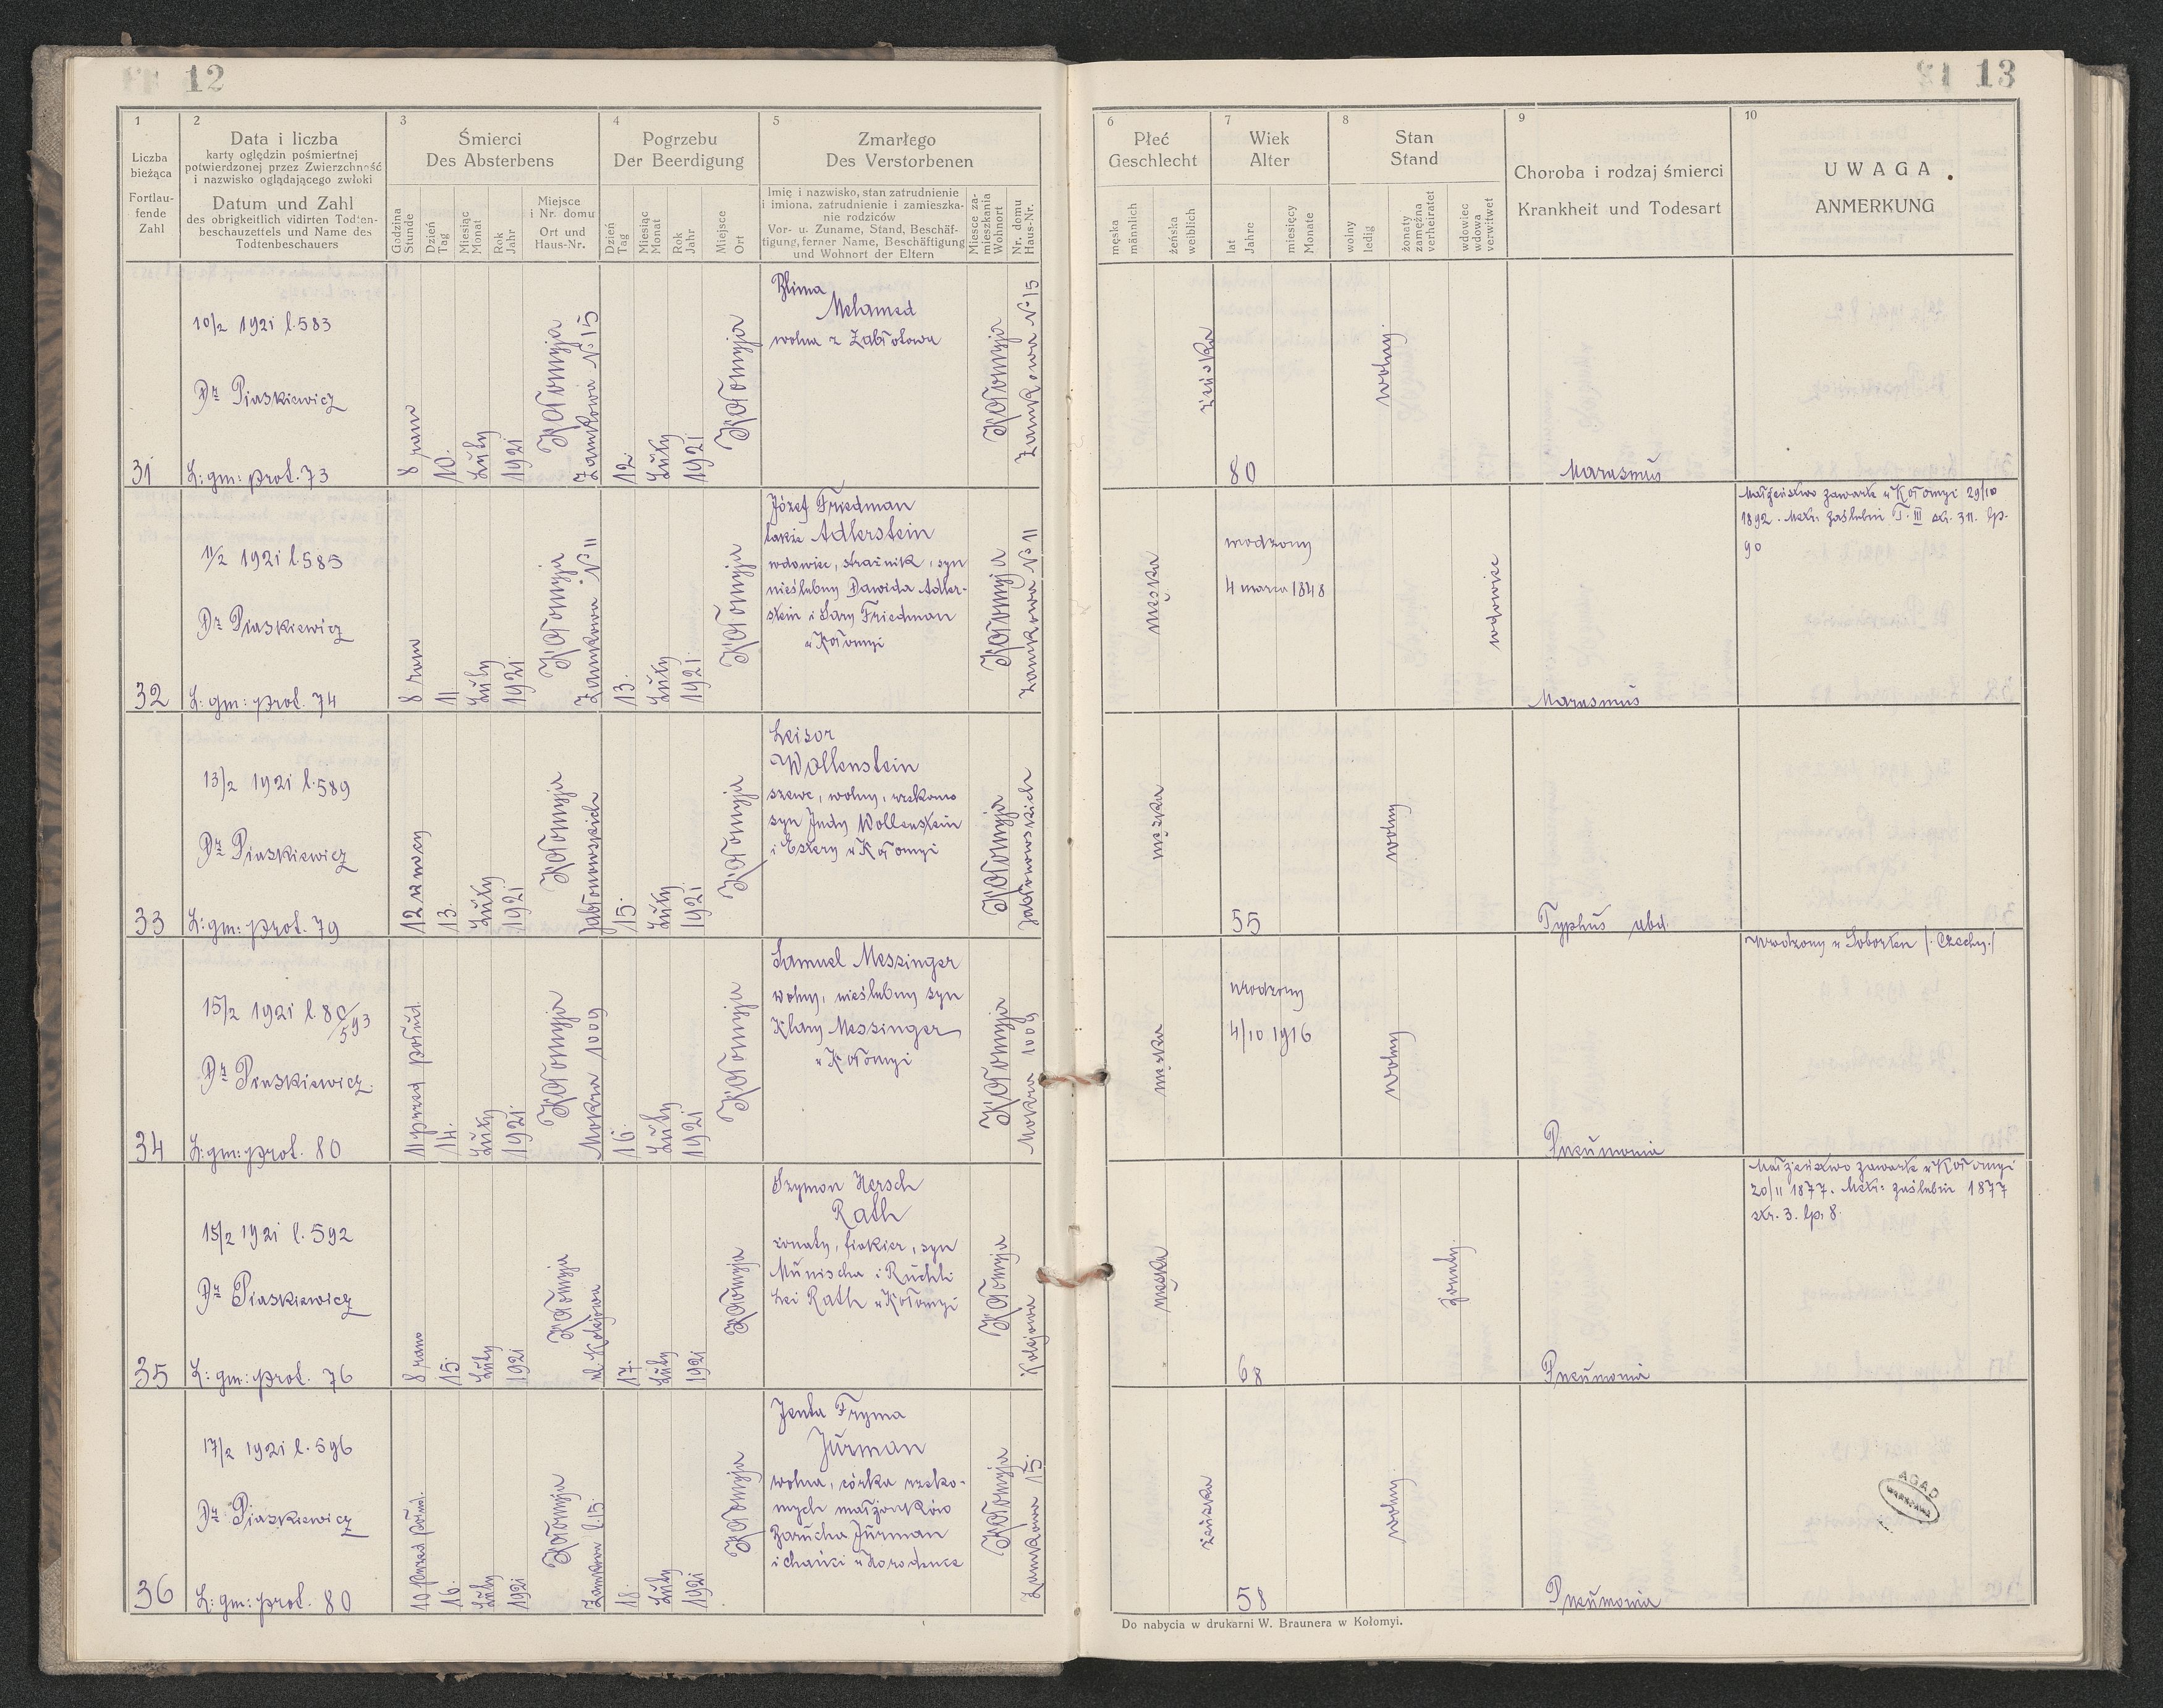 12
1
Liczba
bieżąca
Fortlau-
fende
Zahl
2
Data i liczba
karty oględzin pośmiertnej
potwierdzonej przez Zwierzchność
i nazwisko oglądającego zwłoki
Datum und Zahl
des obrigkeitlich vidirten Todten-
beschauzettels und Name des
Todtenbeschauers
3
Śmierci
Des Absterbens
Godzina
Stunde
Dzień
Tag
Miesiąc
Monat
Rok
Jahr
Miejsce
i Nr. domu
Ort und
Haus-Nr.
4
Pogrzebu
Der Beerdigung
Dzień
Tag
Miesiąc
Monat
Rok
Jahr
Miejsce
Ort
5
Zmarłego
Des Verstorbenen
Imię i nazwisko, stan zatrudnienie
i imiona, zatrudnienie i zamieszka-
nie rodziców
Vor- u. Zuname, Stand, Beschäf-
tigung, ferner Name, Beschäftigung
und Wohnort der Eltern
Miesce za-
mieszkania
Wohnort
Nr. domu
Haus-Nr.
31
10/2 1921 l. 583
Dr Piaskiewicz
L: gm: prot. 73
8 rano
10.
Luty
1921
Kołomyja
Zamkowa № 15
12.
Luty
1921
Kołomyja
Blima
Melamed
wolna z Zabłotowa
Kołomyja
Zamkowa № 15
32
11/2 1921 l. 585
Dr Piaskiewicz
L: gm: prot. 74
8 rano
11
Luty
1921
Kołomyja
Zamkowa № 11
13.
Luty
1921
Kołomyja
Józef Friedman
także Adlerstein
wdowiec, strażnik, syn
nieślubny Dawida Adler-
stein i Sary Friedman
w Kołomyi
Kołomyja
Zamkowa № 11
33
13/2 1921 l. 589
Dr Piaskiewicz
L: gm: prot. 79
12 w nocy
13.
Luty
1921
Kołomyja
Jabłonowskich
15.
Luty
1921
Kołomyja
Leisor
Wollenstein
szewc, wolny, rzekomo
syn Judy Wollenstein
i Estery w Kołomyi
Kołomyja
Jabłonowskich
34
15/2 1921 l. 80/593
Dr Piaskiewicz
L: gm: prot. 80
11 przed połud.
14.
Luty
1921
Kołomyja
Mokra 1009
16.
Luty
1921
Kołomyja
Samuel Messinger
wolny, nieślubny syn
Klary Messinger
w Kołomyi
Kołomyja
Mokra 1009
35
15/2 1921 l. 592
Dr Piaskiewicz
L: gm: prot. 76
8 rano
15.
Luty
1921
Kołomyja
ul. Kolejowa
17.
Luty
1921
Kołomyja
Szymon Hersch
Rath
żonaty, fiakier, syn
Munischa i Ruchli
Lei Rath w Kołomyi
Kołomyja
Kolejowa
36
17/2 1921 l. 596
Dr Piaskiewicz
L: gm: prot. 80
10 przed połud.
16.
Luty
1921
Kołomyja
Zamkow l. 15.
18.
Luty
1921
Kołomyja
Jenta Fryma
Jurman
wolna, córka rzeko-
mych małżonków
Barucha Jurman
i Chańci w Horodence
Kołomyja
Zamkowa 15.
13
6
Płeć
Geschlecht
męska
männlich
żeńska
weiblich
7
Wiek
Alter
lat
Jahre
miesięcy
Monate
8
Stan
Stand
wolny
ledig
żonaty
zamężna
verheiratet
wdowiec
wdowa
verwitwet
9
Choroba i rodzaj śmierci
Krankheit und Todesart
10
UWAGA
ANMERKUNG
żeńska
80
wolny.
Marasmus
męska
urodzony
4 marca 1848
wdowiec
Marasmus
Małżeństwo zawarte w Kołomyi 29/10
1892. Metr. zaślubin T. III str. 311. lp.
90
męska
55
wolny
Typhus abd.
męska
urodzony
4/10 1916
wolny
Pneumonia
Urodzony w Soborten /. Czechy./
męska
68
żonaty.
Pneumonia
Małżeństwo zawarte w Kołomyi
20/11 1877. Metr. zaślubin 1877
str. 3. lp. 8.
żeńska
58
wolny.
Pneumonia
AGAD
WARSZAWA
Do nabycia w drukarni W. Braunera w Kołomyi.